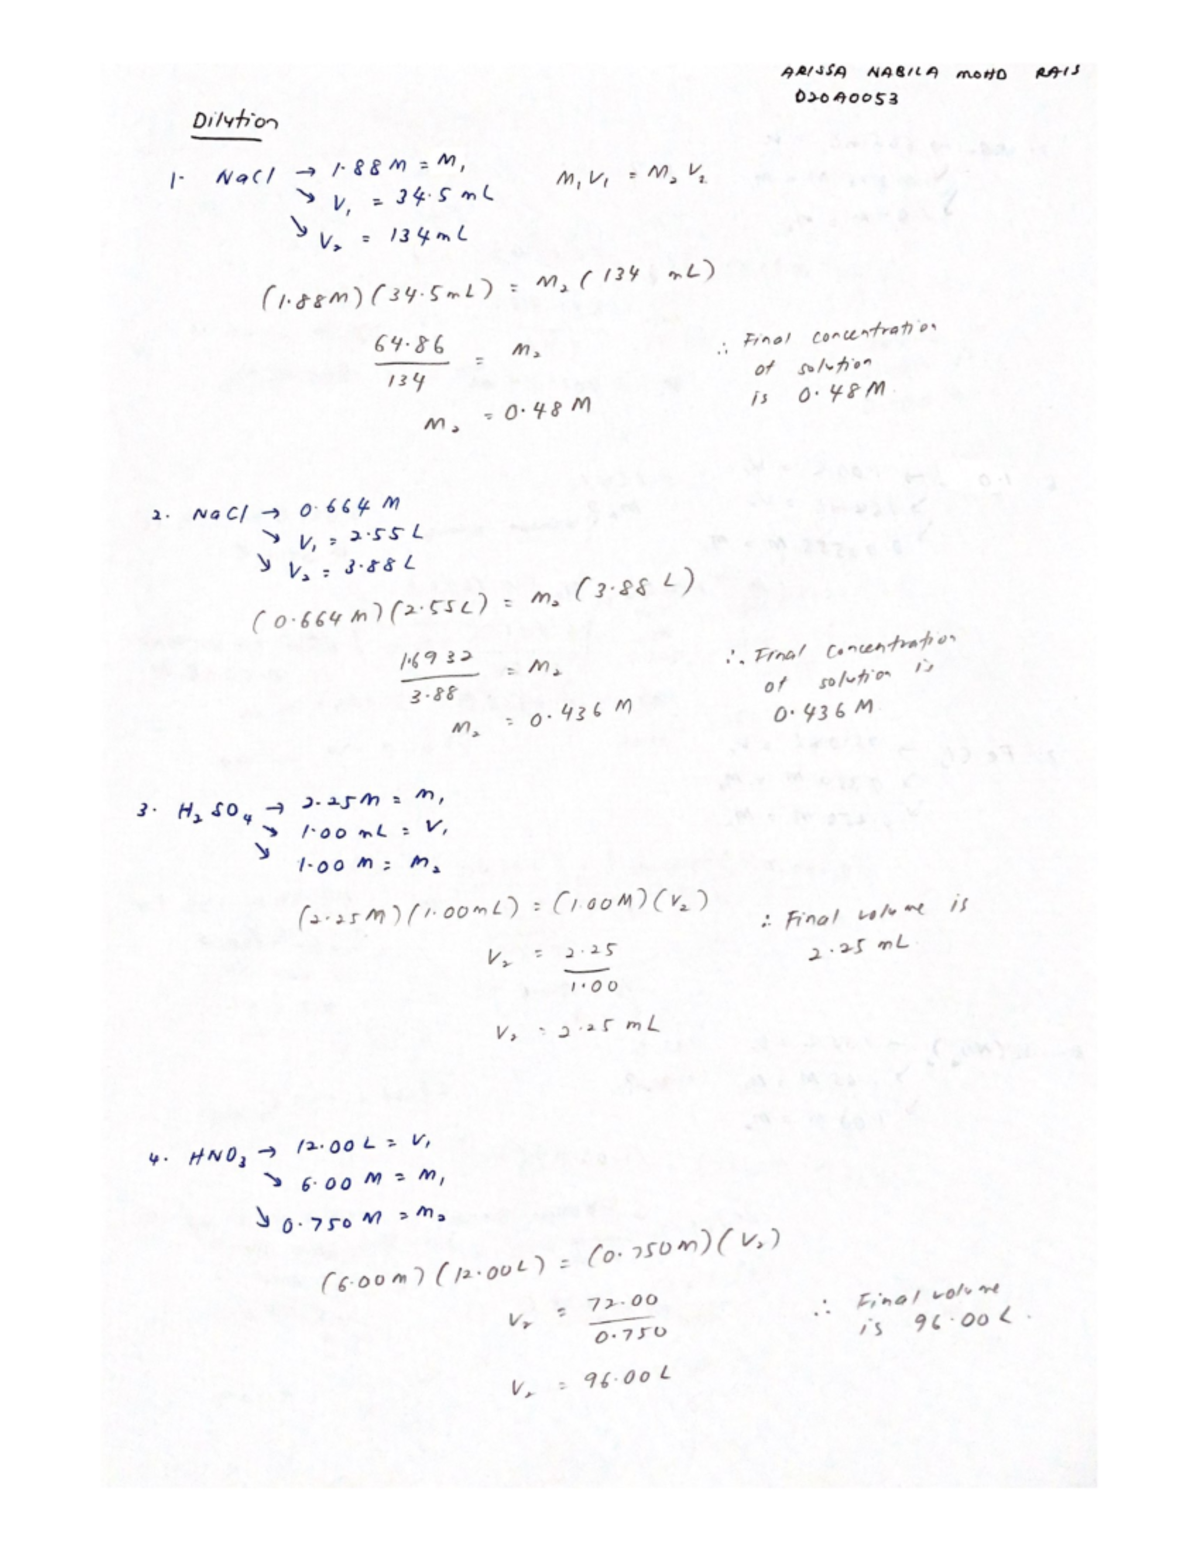 ARISSA NABILA MOHD RAIS
D20A0053
Dilution
1. NaCl → 1.88 M = M₁
↘ V₁ = 34.5 mL
↘ V₂ = 134 mL
M₁V₁ = M₂V₂
(1.88M)(34.5mL) = M₂(134 mL)
64.86
134
= M₂
M₂ = 0.48 M
∴ Final concentration
of solution
is 0.48 M.
2. NaCl → 0.664 M
↘ V₁ = 2.55 L
↘ V₂ = 3.88 L
(0.664 M)(2.55L) = M₂(3.88 L)
1.6932
3.88
= M₂
M₂ = 0.436 M
∴ Final concentration
of solution is
0.436 M.
3. H₂SO₄ → 2.25M = M₁
↘ 1.00 mL = V₁
↘ 1.00 M = M₂
(2.25M)(1.00mL) = (1.00M)(V₂)
V₂ = 2.25
1.00
V₂ = 2.25 mL
∴ Final volume is
2.25 mL.
4. HNO₃ → 12.00 L = V₁
↘ 6.00 M = M₁
↘ 0.750 M = M₂
(6.00M)(12.00L) = (0.750M)(V₂)
V₂ = 72.00
0.750
V₂ = 96.00 L
∴ Final volume
is 96.00 L.